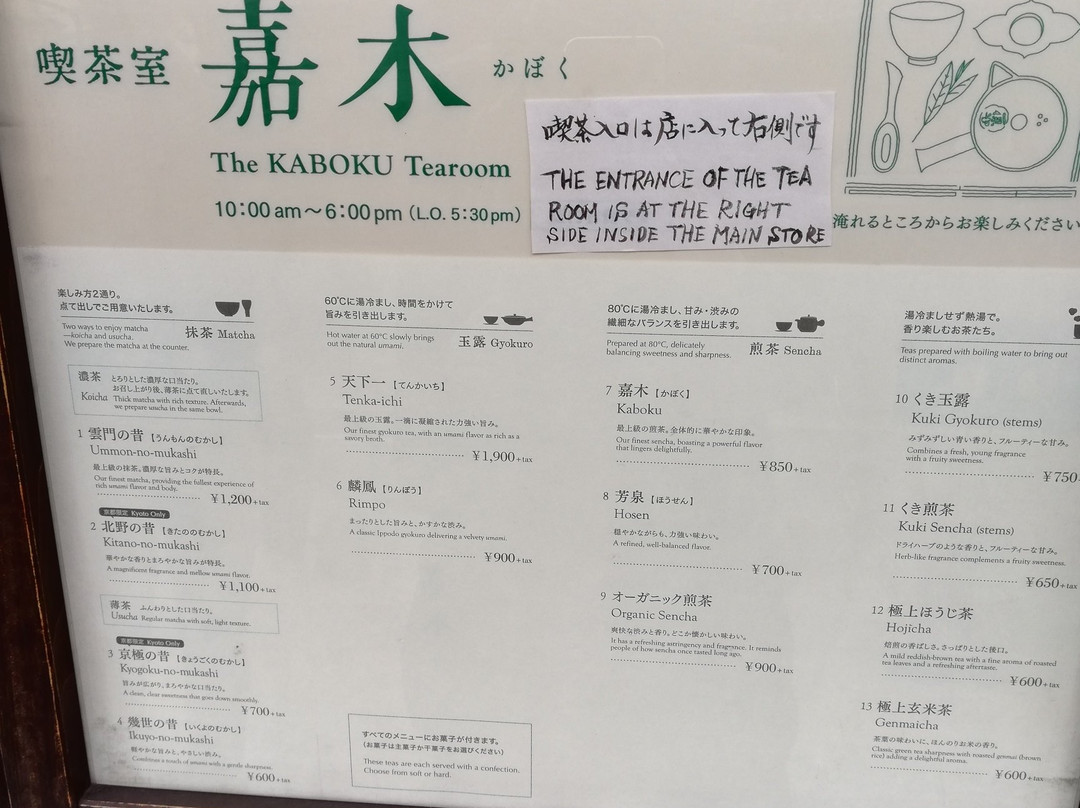 喫茶室 嘉木 かぼく
The KABOKU Tearoom
10:00am～6:00pm (L.O. 5:30pm)
喫茶入口は店に入って右側です
THE ENTRANCE OF THE TEA
ROOM IS AT THE RIGHT
SIDE INSIDE THE MAIN STORE
淹れるところからお楽しみください
楽しみ方2通り。
点て出しでご用意いたします。
Two ways to enjoy matcha
—koicha and usucha.
We prepare the matcha at the counter.
抹茶 Matcha
濃茶 とろりとした濃厚な口当たり。
お召し上がり後、薄茶に点て直しいたします。
Koicha Thick matcha with rich texture. Afterwards,
we prepare usucha in the same bowl.
1 雲門の昔【うんもんのむかし】
Ummon-no-mukashi
最上級の抹茶。濃厚な旨みとコクが特長。
Our finest matcha, providing the fullest experience of
rich umami flavor and body.
¥1,200+tax
京都限定 Kyoto Only
2 北野の昔【きたののむかし】
Kitano-no-mukashi
華やかな香りとまろやかな旨みが特長。
A magnificent fragrance and mellow umami flavor.
¥1,100+tax
薄茶 ふんわりとした口当たり。
Usucha Regular matcha with soft, light texture.
京都限定 Kyoto Only
3 京極の昔【きょうごくのむかし】
Kyogoku-no-mukashi
旨みが広がり、まろやかな口当たり。
A clean, clear sweetness that goes down smoothly.
¥700+tax
4 幾世の昔【いくよのむかし】
Ikuyo-no-mukashi
軽やかな旨みと、やさしい渋み。
Combines a touch of umami with a gentle sharpness.
¥600+tax
60℃に湯冷まし、時間をかけて
旨みを引き出します。
Hot water at 60°C slowly brings
out the natural umami.
玉露 Gyokuro
5 天下一【てんかいち】
Tenka-ichi
最上級の玉露。一滴に凝縮された力強い旨み。
Our finest gyokuro tea, with an umami flavor as rich as a
savory broth.
¥1,900+tax
6 麟鳳【りんぽう】
Rimpo
まったりとした旨みと、かすかな渋み。
A classic Ippodo gyokuro delivering a velvety umami.
¥900+tax
すべてのメニューにお菓子が付きます。
(お菓子は主菓子か干菓子をお選びください)
These teas are each served with a confection.
Choose from soft or hard.
80℃に湯冷まし、甘み・渋みの
繊細なバランスを引き出します。
Prepared at 80°C, delicately
balancing sweetness and sharpness.
煎茶 Sencha
7 嘉木【かぼく】
Kaboku
最上級の煎茶。全体的に華やかな印象。
Our finest sencha, boasting a powerful flavor
that lingers delightfully.
¥850+tax
8 芳泉【ほうせん】
Hosen
穏やかながらも、力強い味わい。
A refined, well-balanced flavor.
¥700+tax
9 オーガニック煎茶
Organic Sencha
爽快な渋みと香り。どこか懐かしい味わい。
It has a refreshing astringency and fragrance. It reminds
people of how sencha once tasted long ago.
¥900+tax
湯冷ましせず熱湯で。
香り楽しむお茶たち。
Teas prepared with boiling water to bring out
distinct aromas.
10 くき玉露
Kuki Gyokuro (stems)
みずみずしい青い香りと、フルーティーな甘み。
Combines a fresh, young fragrance
with a fruity sweetness.
¥750
11 くき煎茶
Kuki Sencha (stems)
ドライハーブのような香りと、フルーティーな甘み。
Herb-like fragrance complements a fruity sweetness.
¥650+tax
12 極上ほうじ茶
Hojicha
焙煎の香ばしさ。さっぱりとした後口。
A mild reddish-brown tea with a fine aroma of roasted
tea leaves and a refreshing aftertaste.
¥600+tax
13 極上玄米茶
Genmaicha
茶葉の味わいに、ほんのりお米の香り。
Classic green tea sharpness with roasted genmai (brown
rice) adding a delightful aroma.
¥600+tax